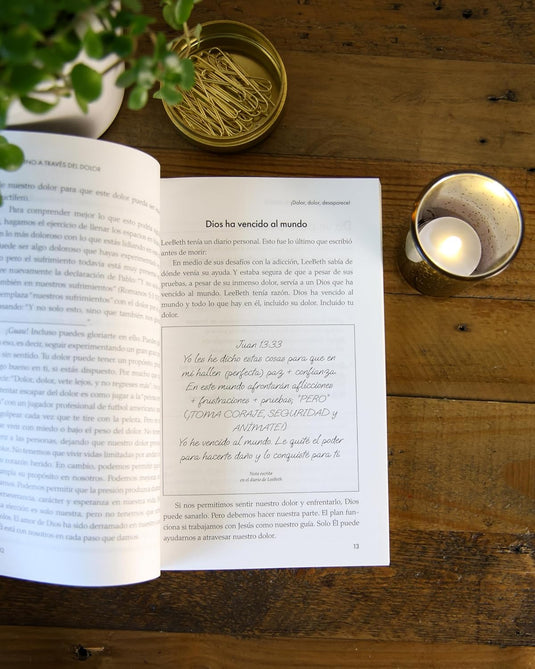 NO A TRAVÉS DEL DOLOR
nuestro dolor para que este dolor pueda ser
Para comprender mejor lo que esto podría
hagamos el ejercicio de llenar los espacios en
lo más doloroso con lo que estás lidiando en
uede ser algo doloroso que hayas experimentado
pero el sufrimiento todavía está muy presente
ee nuevamente la declaración de Pablo: "Y no
mbién en nuestros sufrimientos" (Romanos 5:
emplaza "nuestros sufrimientos" con el dolor por
sando: "Y no solo esto, sino que también nos
¡Guau! Incluso puedes gloriarte en ello. Puede
eso, es decir, seguir experimentando un gran
sin sentido. Tu dolor puede tener un propósito
go bueno en ti, si estás dispuesto. Por mucho
decir: "Dolor, dolor, vete lejos, y no regreses más"
tentar escapar del dolor es como jugar a la
" con un jugador profesional de futbol americano
golpear cada vez que te tire con la pelota. Pero
vivir con miedo o bajo el peso del dolor. No
a las personas, dejando que nuestro dolor
No tenemos que vivir vidas limitadas por
corazón herido. En cambio, podemos permitir
mpla su propósito en nosotros. Podemos
amos. Podemos permitir que la presión produzca
erseverancia, carácter y esperanza en nuestra vida.
elección es solo nuestra, pero no tenemos que
olos. El amor de Dios ha sido derramado en nuestro
Él está con nosotros en cada paso que damos.
¡Dolor, dolor, desaparece!
Dios ha vencido al mundo
LeeBeth tenía un diario personal. Esto fue lo último que escribió
antes de morir:
En medio de sus desafíos con la adicción, LeeBeth sabía de
dónde venía su ayuda. Y estaba segura de que a pesar de sus
pruebas, a pesar de su inmenso dolor, servía a un Dios que ha
vencido al mundo. LeeBeth tenía razón. Dios ha vencido al
mundo y todo lo que hay en él, incluido su dolor. Incluido tu
dolor.
Juan 13:33
Yo les he dicho estas cosas para que en
mí hallen (perfecta) paz + confianza.
En este mundo afrontarán aflicciones
+ frustraciones + pruebas, "PERO"
(¡TOMA CORAJE, SEGURIDAD y
ANÍMATE!)
Yo he vencido al mundo. Le quité el poder
para hacerte daño y lo conquisté para ti.
Nota escrita
en el diario de LeeBeth
Si nos permitimos sentir nuestro dolor y enfrentarlo, Dios
puede sanarlo. Pero debemos hacer nuestra parte. El plan fun-
ciona si trabajamos con Jesús como nuestro guía. Solo Él puede
ayudarnos a atravesar nuestro dolor.
13